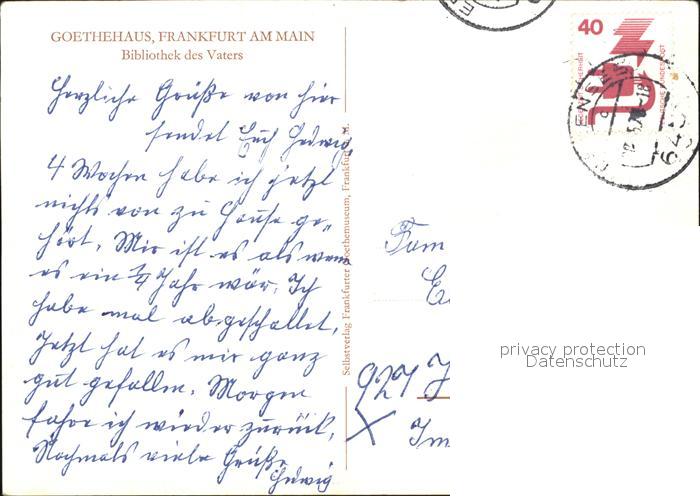 GOETHEHAUS, FRANKFURT AM MAIN
Bibliothek des Vaters
Herzliche Grüße von hier
sendet Euch Hedwig,
4 Wochen habe ich jetzt
nichts von zu Hause ge-
hört. Mir ist es als wenn
es ein ¼ Jahr wär. Ich
habe mal abgeschaltet,
Jetzt hat es mir ganz
gut gefallen. Morgen
fahre ich wieder zurück.
Nochmals viele Grüße
Hedwig
Selbstverlag Frankfurter Goethemuseum, Frankfurt
40
Fam
privacy protection
Datenschutz